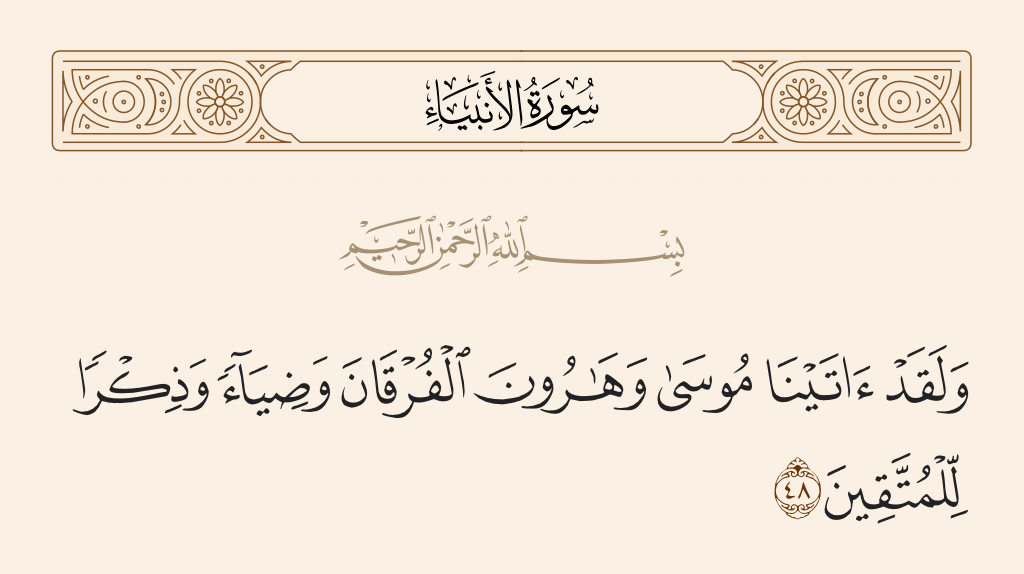 سُورَةُ الأَنبِيَاءِ
بِسْمِ ٱللَّهِ ٱلرَّحْمَٰنِ ٱلرَّحِيمِ
وَلَقَدْ ءَاتَيْنَا مُوسَىٰ وَهَٰرُونَ ٱلْفُرْقَانَ وَضِيَآءً وَذِكْرًا
لِّلْمُتَّقِينَ ٤٨